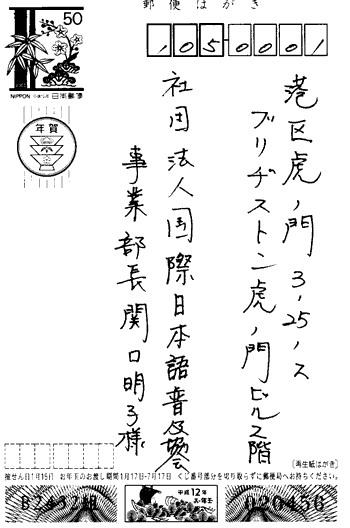 郵便はがき
50
NIPPON
日本郵便
年賀
105-0001
港区虎ノ門3,25,2
ブリヂストン虎ノ門ビル2階
社団法人国際日本語普及協会
事業部長関口明子様
〔再生紙はがき〕
抽せん日1月15日 お年玉のお渡し期間1月17日-7月17日 くじ番号部分を切り取らずに郵便局へお持ちください。
平成12年
お年玉